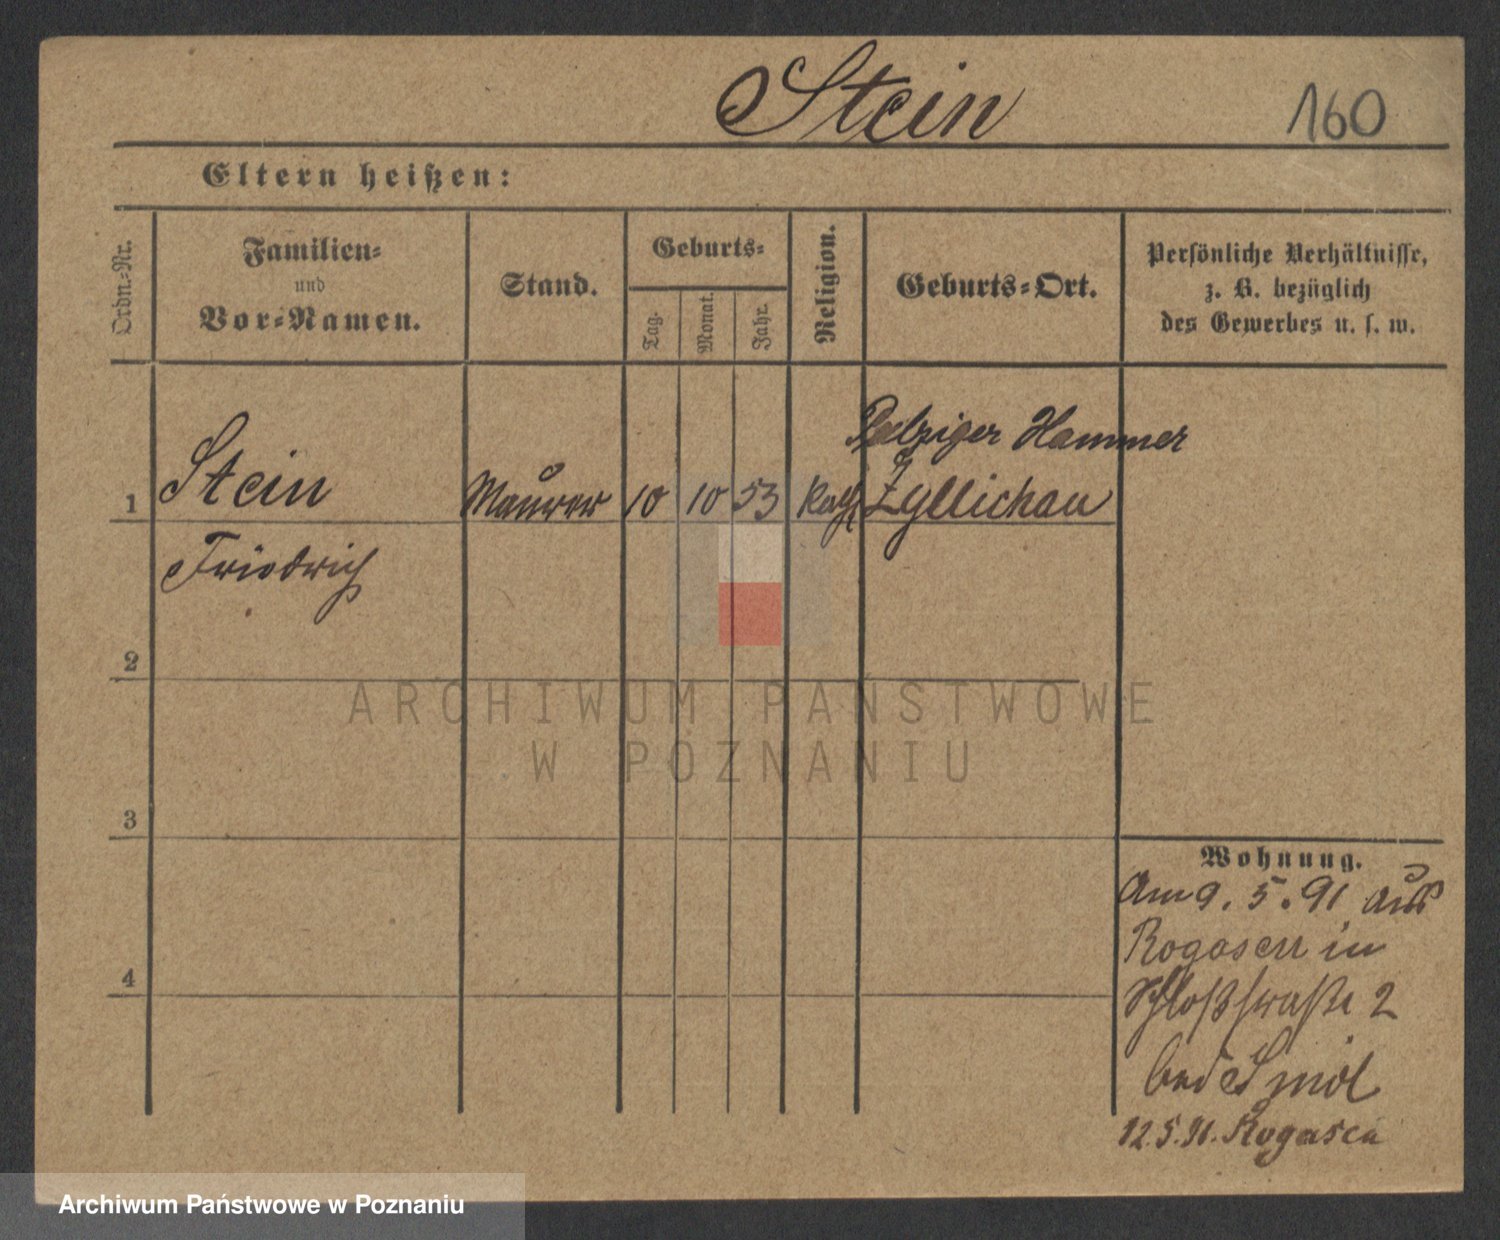 Stein
160
Eltern heißen:
Ordn.-Nr.
Familien-
und
Vor-Namen.
Stand.
Geburts-
Tag.
Monat.
Jahr.
Religion.
Geburts-Ort.
Persönliche Verhältnisse,
z. B. bezüglich
des Gewerbes u. s. w.
Hammer
1 Stein Maurer 10 10 53 Kath Züllichau
Friedrich
2
3
4
Wohnung.
Am 9. 5. 91 aus
Rogasen in
Schloßstraße 2
bei
12.5.91. Rogasen
ARCHIWUM PAŃSTWOWE
W POZNANIU
Archiwum Państwowe w Poznaniu